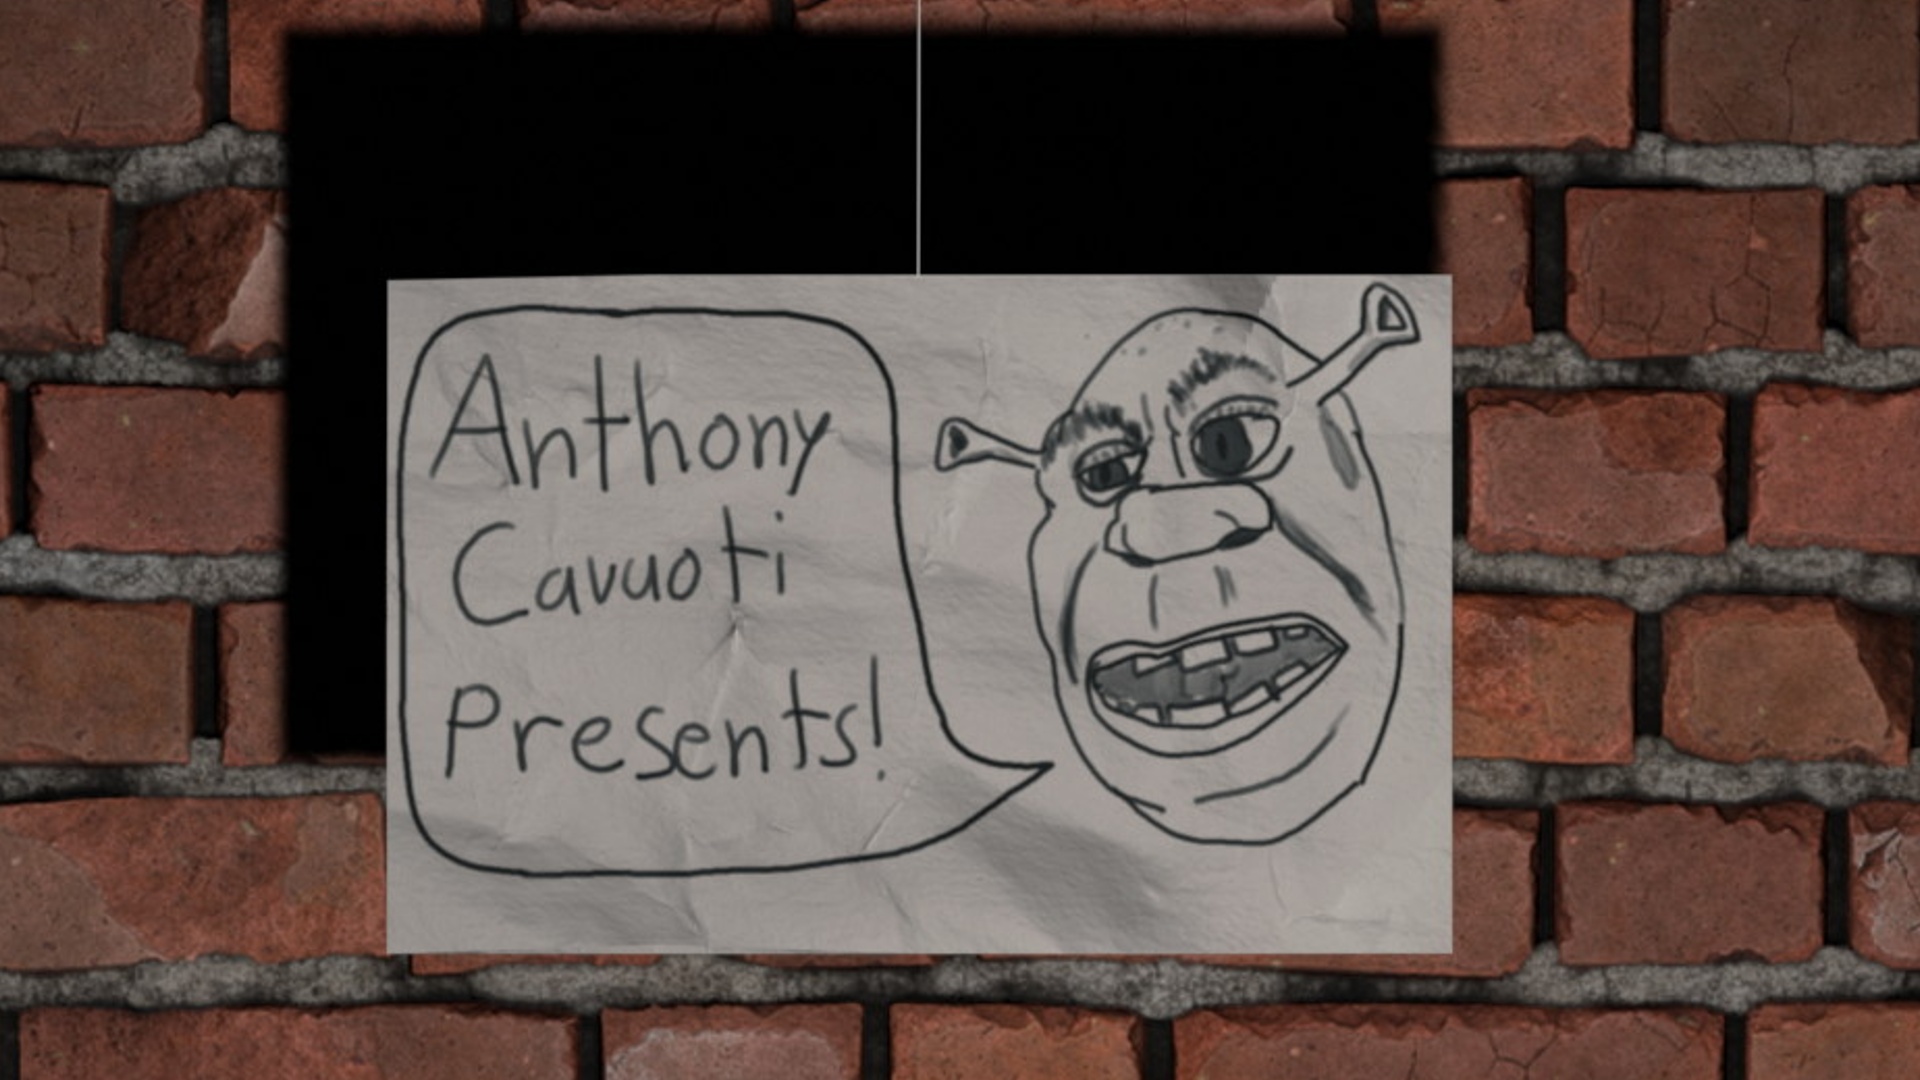 Anthony
Cavuoti
Presents!